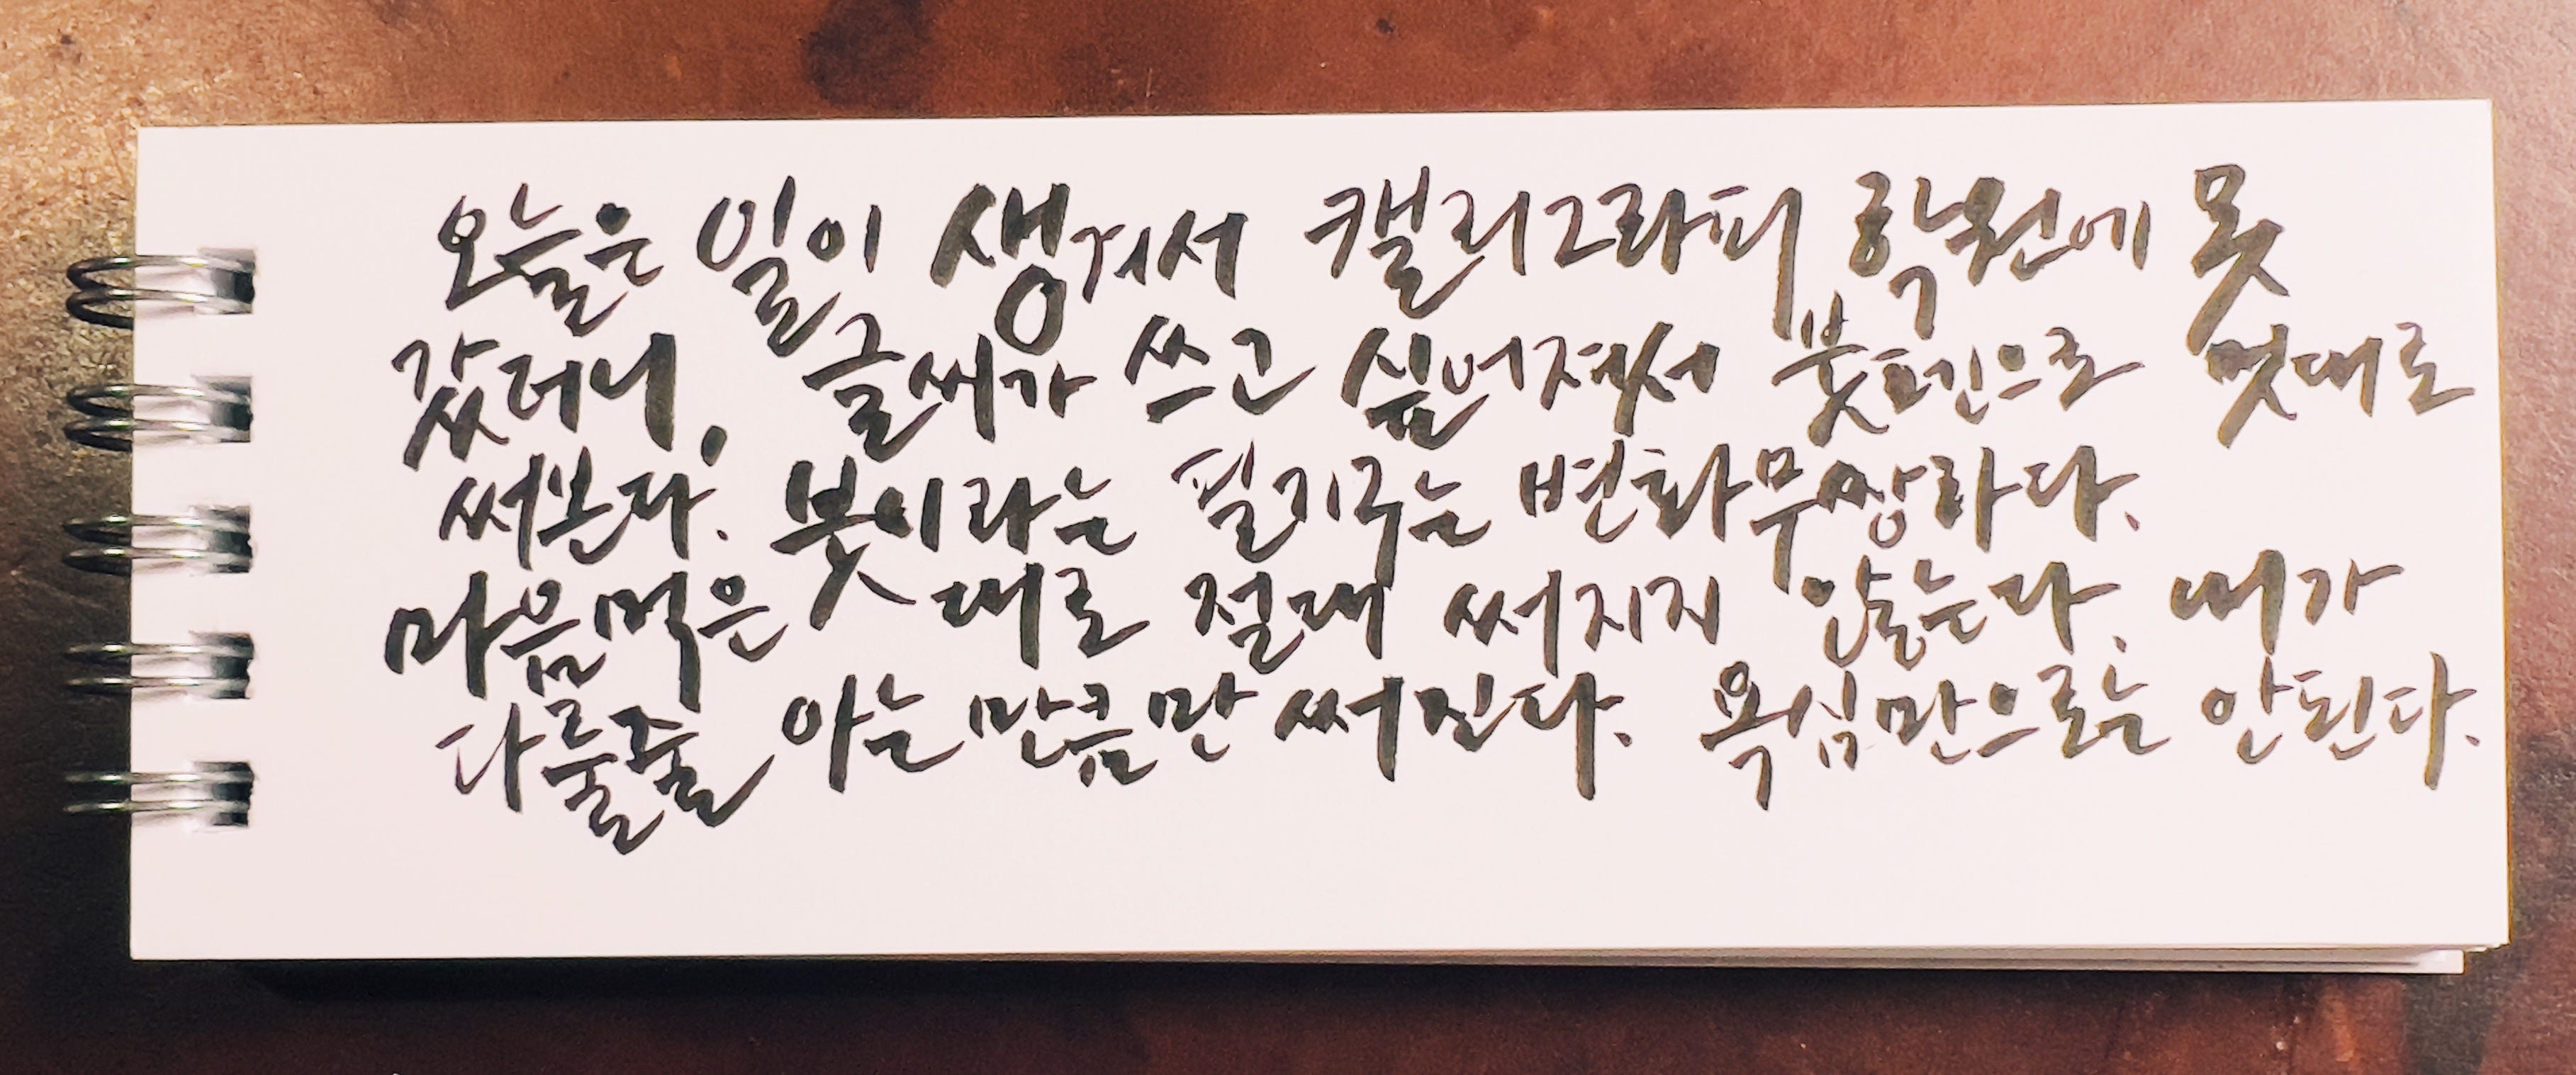 오늘은 일이 생겨서 캘리그라피 학원에 못
갔더니, 글씨가 쓰고 싶어져서 붓펜으로 멋대로
써본다. 붓이라는 필기구는 변화무쌍하다.
마음먹은 대로 절대 써지지 않는다. 내가
다룰줄 아는만큼만 써진다. 욕심만으로는 안된다.